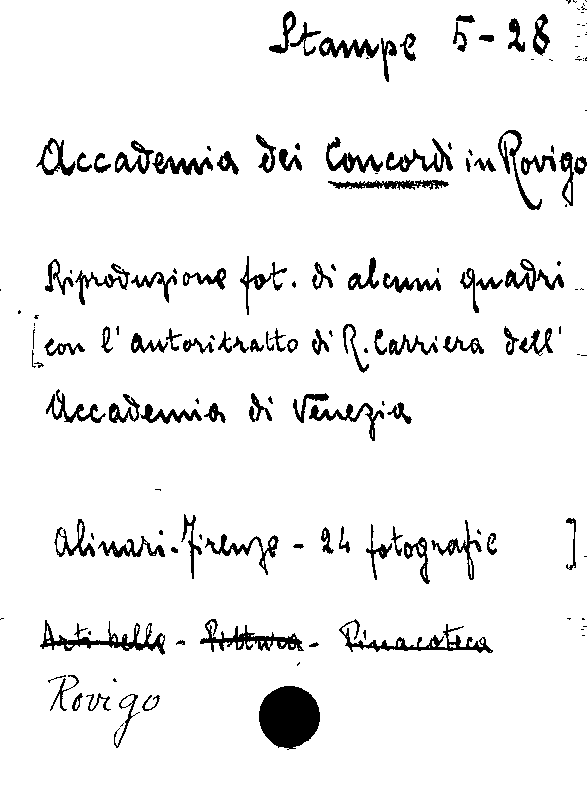 Stampe 5-28
Accademia dei Concordi in Rovigo
Riproduzione fot. di alcuni quadri
[con l'autoritratto di R. Carriera dell'
Accademia di Venezia
Alinari-Firenze - 24 fotografie ]
Arti belle - Pittura - Pinacoteca
Rovigo